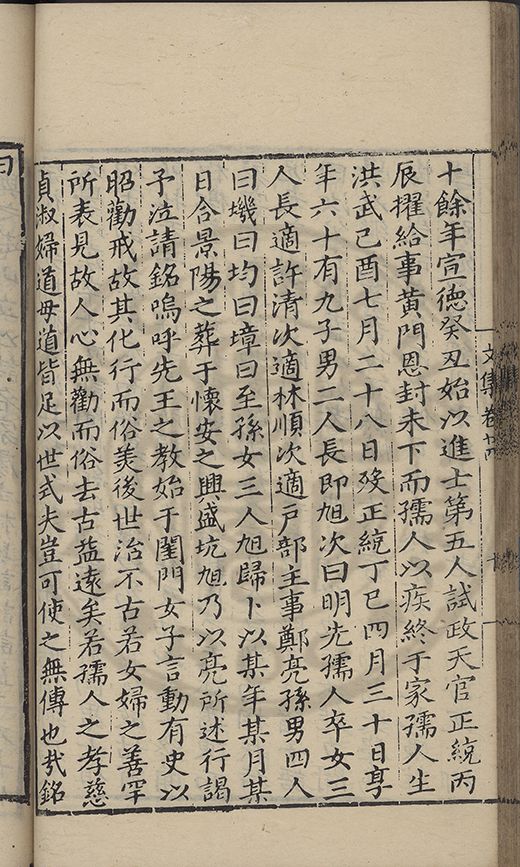 十餘年宣德癸丑始以進士第五人試政天官正統丙
辰擢給事黃門恩封未下而孺人以疾終于家孺人生
洪武己酉七月二十八日歿正統丁巳四月三十日享
年六十有九子男二人長即旭次曰明先孺人卒女三
人長適許清次適林順次適戶部主事鄭亮孫男四人
曰璣曰均曰墇曰至孫女三人旭歸卜以某年某月某
日合景陽之葬于懷安之興盛坑旭乃以亮所述行謁
予泣請銘嗚呼先王之教始于閨門女子言動有史以
昭勸戒故其化行而俗美後世治不古若女婦之善罕
所表見故人心無勸而俗去古益遠矣若孺人之孝慈
貞淑婦道毋道皆足以世式夫豈可使之無傳也㢤銘
文集卷
十
曰